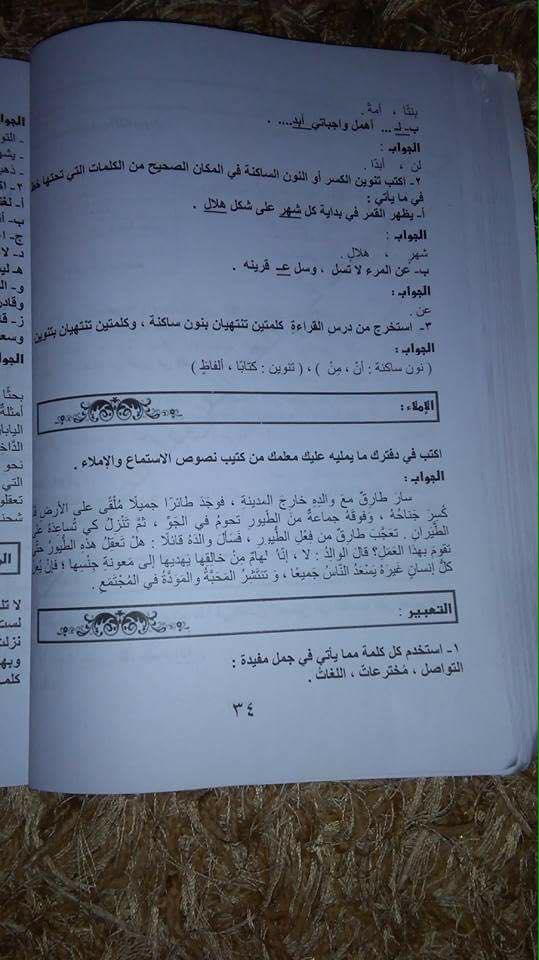 بنتًا ، أمةً .
ب- لـ ... أهمل واجباتي أبد.... .
الجواب :
لن ، أبدًا .
٢- اكتب تنوين الكسر أو النون الساكنة في المكان الصحيح من الكلمات التي تحتها خط
في ما يأتي :
أ- يظهر القمر في بداية كل شهر على شكل هلال .
الجواب :
شهرٍ ، هلالٍ .
ب- عن المرء لا تسل ، وسل عـ قرينه .
الجواب :
عن .
٣- استخرج من درس القراءة كلمتين تنتهيان بنون ساكنة ، وكلمتين تنتهيان بتنوين
الجواب :
( نون ساكنة : أنْ ، مِنْ ) ، ( تنوين : كتابًا ، ألفاظٍ )
الإملاء :
اكتب في دفترك ما يمليه عليك معلمك من كتيب نصوص الاستماع والإملاء .
الجواب :
سارَ طارقٌ معَ والدِهِ خارجَ المدينةِ ، فوجَدَ طائرًا جميلًا مُلْقًى على الأرضِ
كُسِرَ جَناحُهُ ، وَفوقَهُ جماعةٌ منَ الطّيورِ تحومُ في الجَوِّ ، ثُمَّ تنْزِلُ كي تُساعِدَهُ
الطّيرانِ . تعجَّبَ طارقٌ من فِعْلِ الطّيورِ ، فَسألَ والدَهُ قائلًا : هَلْ تعقلُ هذهِ الطُّيورُ
تقومَ بهذا العَمَلِ؟ قالَ الوالِدُ : لا ، إنّا إلهامٌ مِنْ خالِقِها يَهديها إلى مَعونةِ جِنْسِها ؛ فإنْ
كلُّ إنسانٍ غيرَهُ يسْعَدُ النّاسُ جَميعًا ، وَتنْتَشِرُ المَحَبَّةُ والمَوَدَّةُ في المُجْتَمَعِ .
التعبير :
١- استخدم كل كلمة مما يأتي في جمل مفيدة :
التواصل ، مُخترعات ، اللغات .
٣٤
الجواب